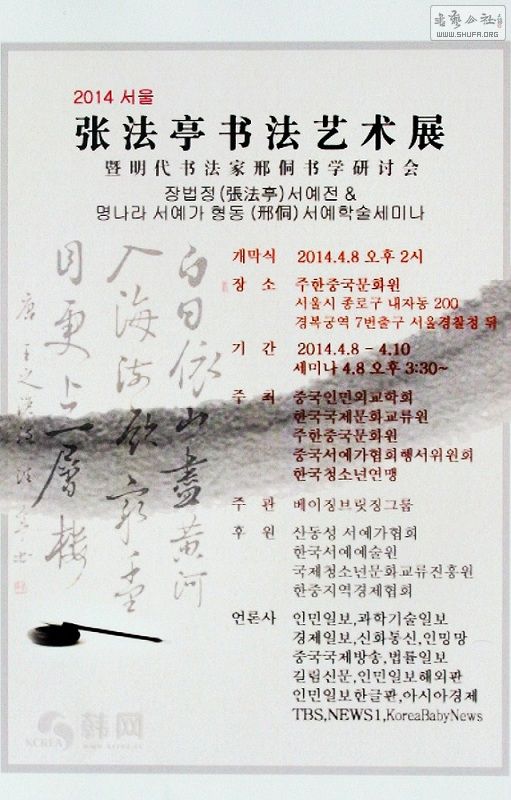 WWW.SHUFA.ORG
2014 서울
张法亭书法艺术展
暨明代书法家邢侗书学研讨会
장법정(張法亭)서예전 &
명나라 서예가 형동(邢侗)서예학술세미나
白日依山盡黄河
入海流欲窮千里
目更上一層樓
唐王之渙詩
개막식 2014.4.8 오후 2시
장 소 주한중국문화원
서울시 종로구 내자동 200
경복궁역 7번출구 서울경찰청 뒤
기 간 2014.4.8 - 4.10
세미나 4.8 오후 3:30~
주 최 중국인민외교학회
한국국제문화교류원
주한중국문화원
중국서예가협회행서위원회
한국청소년연맹
주 관 베이징브릿징그룹
후 원 산동성 서예가협회
한국서예예술원
국제청소년문화교류진흥원
한중지역경제협회
언론사 인민일보,과학기술일보
경제일보,신화통신,인밍망
중국국제방송,법률일보
길림신문,인민일보해외판
인민일보한글판,아시아경제
TBS,NEWS1,KoreaBabyNews
韩网